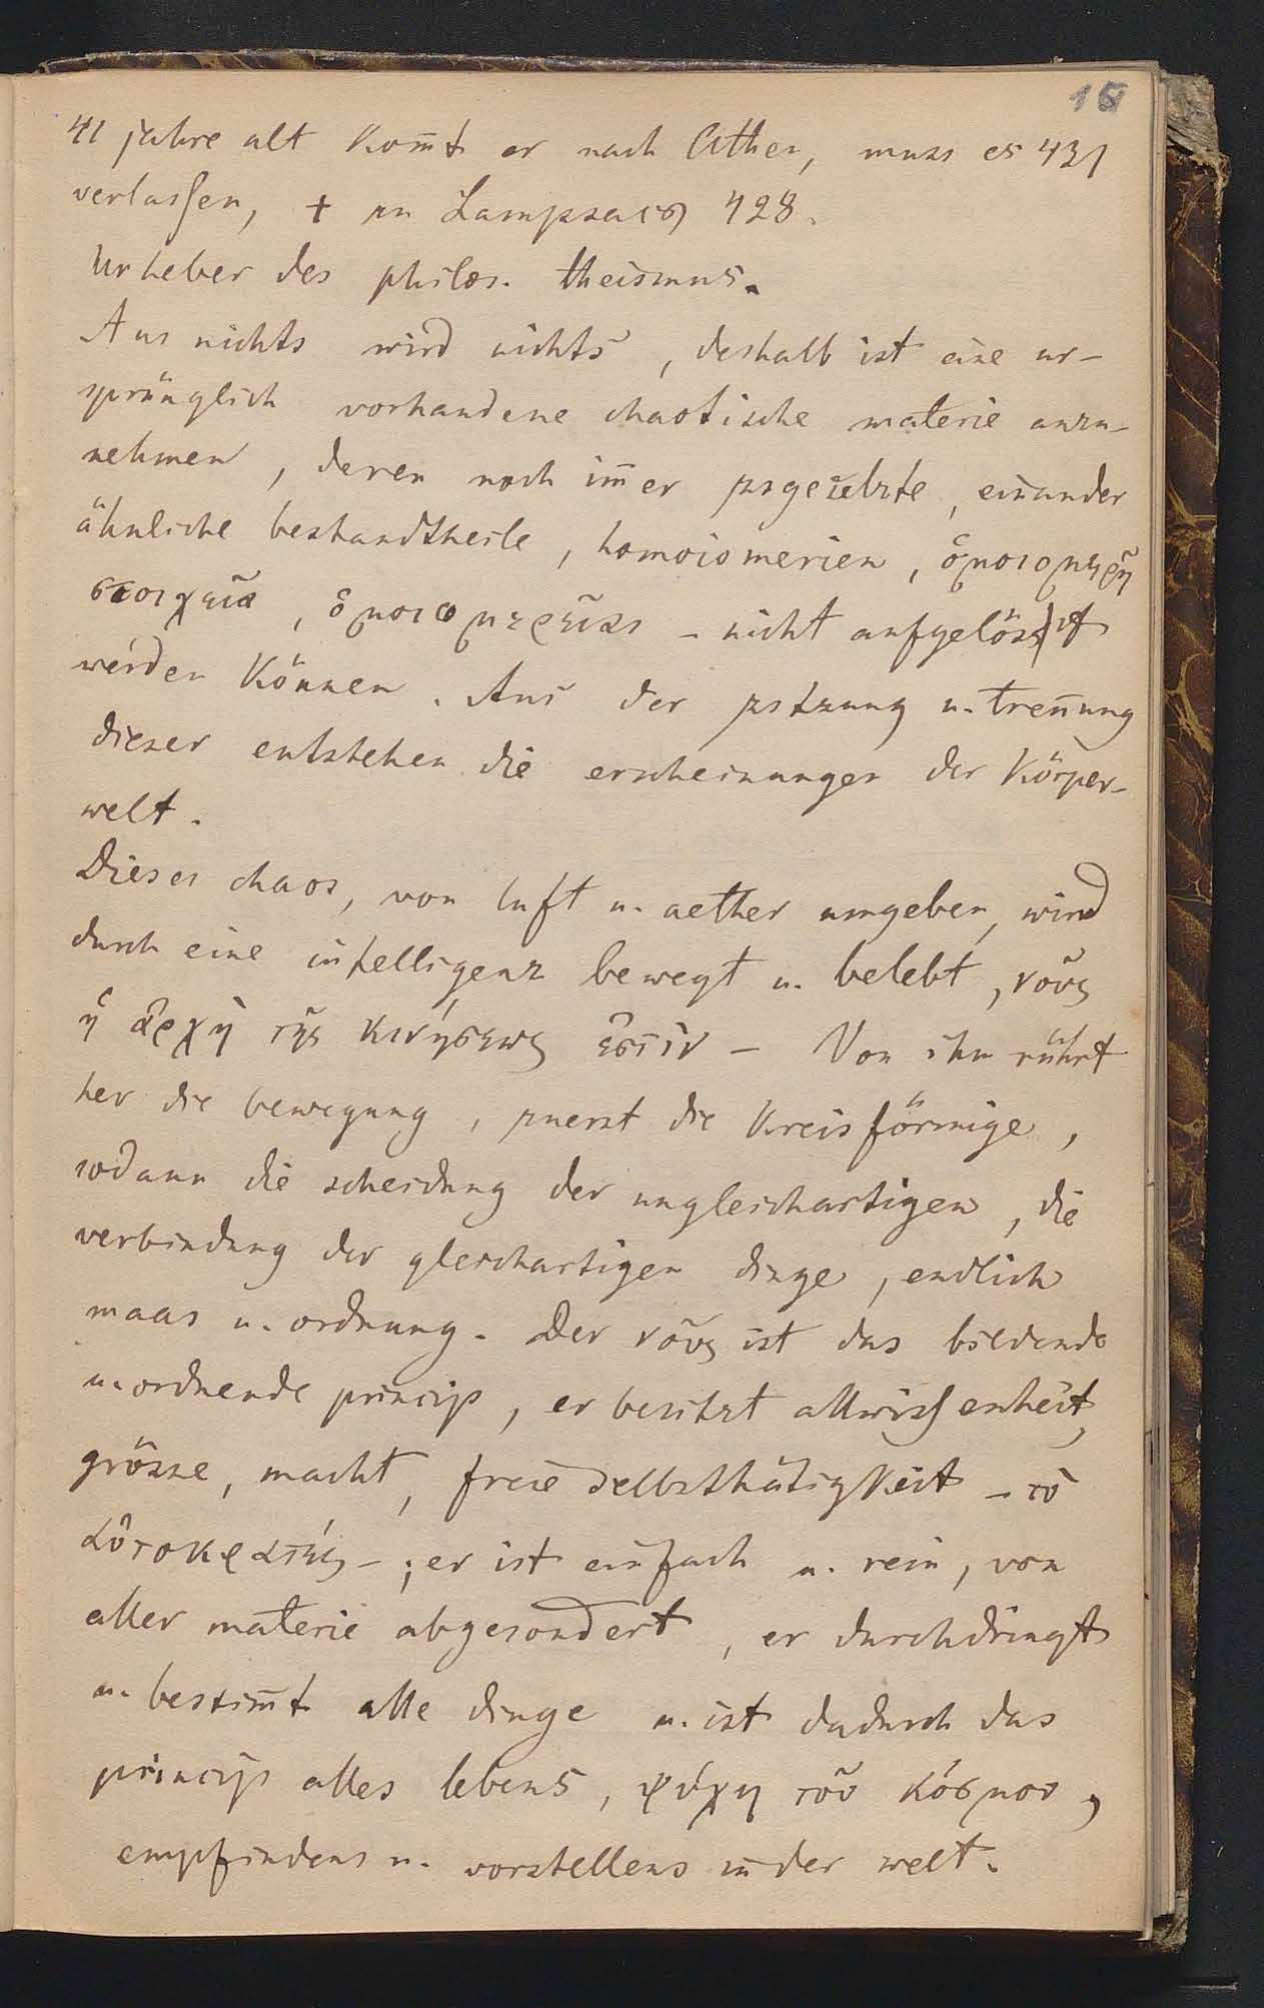 16
41 jahre alt kom̄t er nach Athen, muss es 431
verlassen, † zu Lampsacos 428.
Urheber des philos. theismus.
Aus nichts wird nichts, deshalb ist eine ur-
sprünglich vorhandene chaotische materie anzu-
nehmen, deren noch im̄er zsgesetzte, einander
ähnliche bestandtheile, homoiomerien, ὁμοιομερῆ
στοιχεῖα, ὁμοιομερεῖαι - nicht aufgelöst
werden können. Aus der zstzung u. tren̄ung
dieser entstehen die erscheinungen der körper-
welt.
Dieses chaos, von luft u. aether umgeben, wird
durch eine intelligenz bewegt u. belebt, νοῦς
ἡ ἀρχὴ τῆς κινήσεως ἐστίν - Von ihm rührt
her die bewegung, zuerst die kreisförmige,
sodann die scheidung der ungleichartigen, die
verbindung der gleichartigen dinge, endlich
maas u. ordnung. Der νοῦς ist das bildende
u. ordnende princip, er besitzt allwissenheit,
grösse, macht, freie selbstthätigkeit - τὸ
αὐτοκρατές -; er ist einfach u. rein, von
aller materie abgesondert, er durchdringt
u. bestim̄t alle dinge u. ist dadurch das
princip alles lebens, ψύχη τοῦ κόσμου,
empfindens u. vorstellens in der welt.